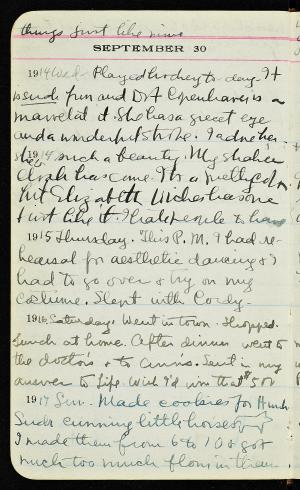 things just like mine
SEPTEMBER 30
1914 Wed. Played hockey to-day. It
is such fun and Dot Copenhaver is a
marvel at it. She has a great eye
and a wonderful stroke. I adore her.
She 19 is such a beauty. My shaker
cloak has come. It's a pretty color,
but Elizabeth has one
just like it. I hate people to have
1915 Thursday. This P. M. I had re-
hearsal for aesthetic dancing & I
had to go over & try on my
costume. Slept with Cordy.
1916 Saturday. Went in town. Shopped.
Lunch at home. After dinner went to
the doctor's & to Ann's. Sent in my
answer to Life. Wish I'd win that $500
1917 Sun. Made cookies for
Such cunning little horses
I made them from 6 to 10 & got
much too much flour in them.